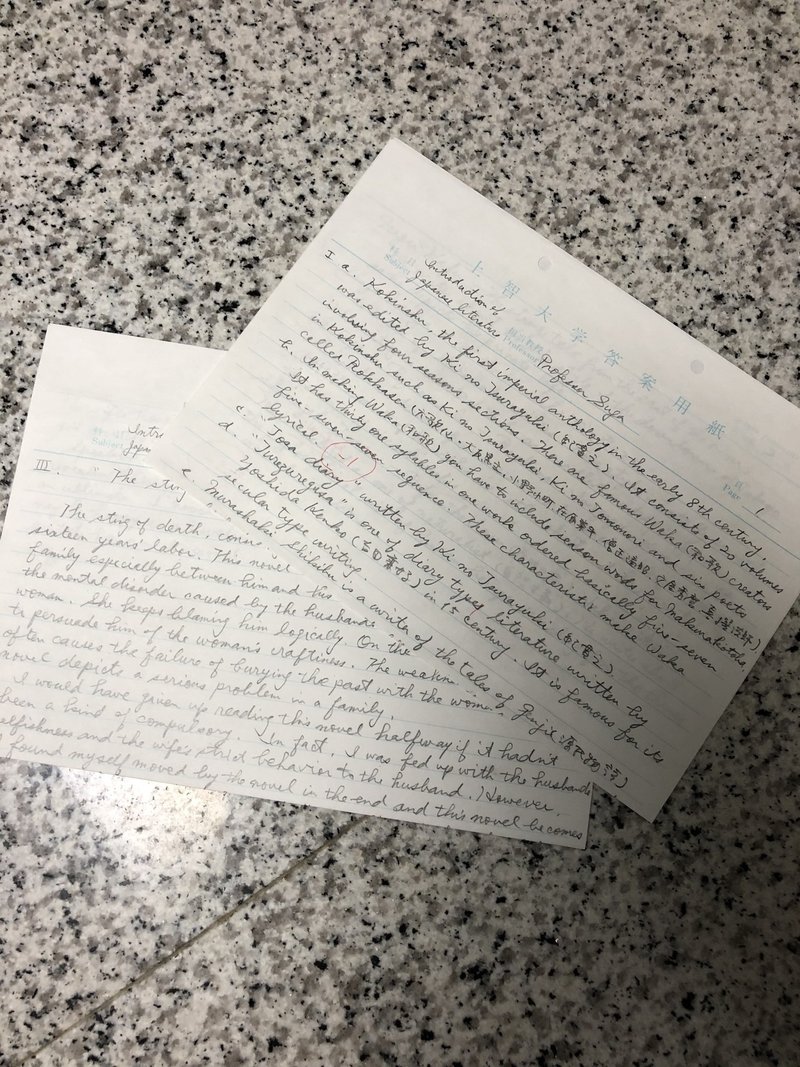 上智大学答案用紙
科目 Subject Introduction of Japanese literature Professor Suga
頁 Page 1
I a. Kokinshu, the first imperial anthology in the early 8th century,
was edited by Ki no Tsurayuki (紀貫之). It consists of 20 volumes
involving four seasons sections. There are famous Waka (和歌) creators
in Kokinshu such as Ki no Tsurayuki Ki no Tomonori and six poets
called Rokkasen
b. In making Waka (和歌) you have to include season words for
It has thirty one syllables in one work ordered basically five-seven
five-seven-seven sequence. These characteristics make Waka
lyrical.
-1
c. "Tosa diary" written by Ki no Tsurayuki (紀貫之)
d. "Tsurezuregusa" is one of diary types literature written by
Yoshida Kenko (吉田兼好) in 15 century. It is famous for its
secular type writing
e. Murashaki shikibu is a writer of the tales of Genji (源氏物語)
Subject
III. "The sting
The sting of death,
sixteen years' labor. This novel
family especially between him and his
the mental disorder caused by the husbands
woman. She keeps blaming him logically. On the
to persuade him of the woman's craftiness. The weakness
often causes the failure of burying the past with the women.
novel depicts a serious problem in a family.
I would have given up reading this novel halfway if it hadn't
been a kind of compulsory. In fact, I was fed up with the husband
selfishness and the wife's strict behavior to the husband. However,
found myself moved by the novel in the end and this novel becomes